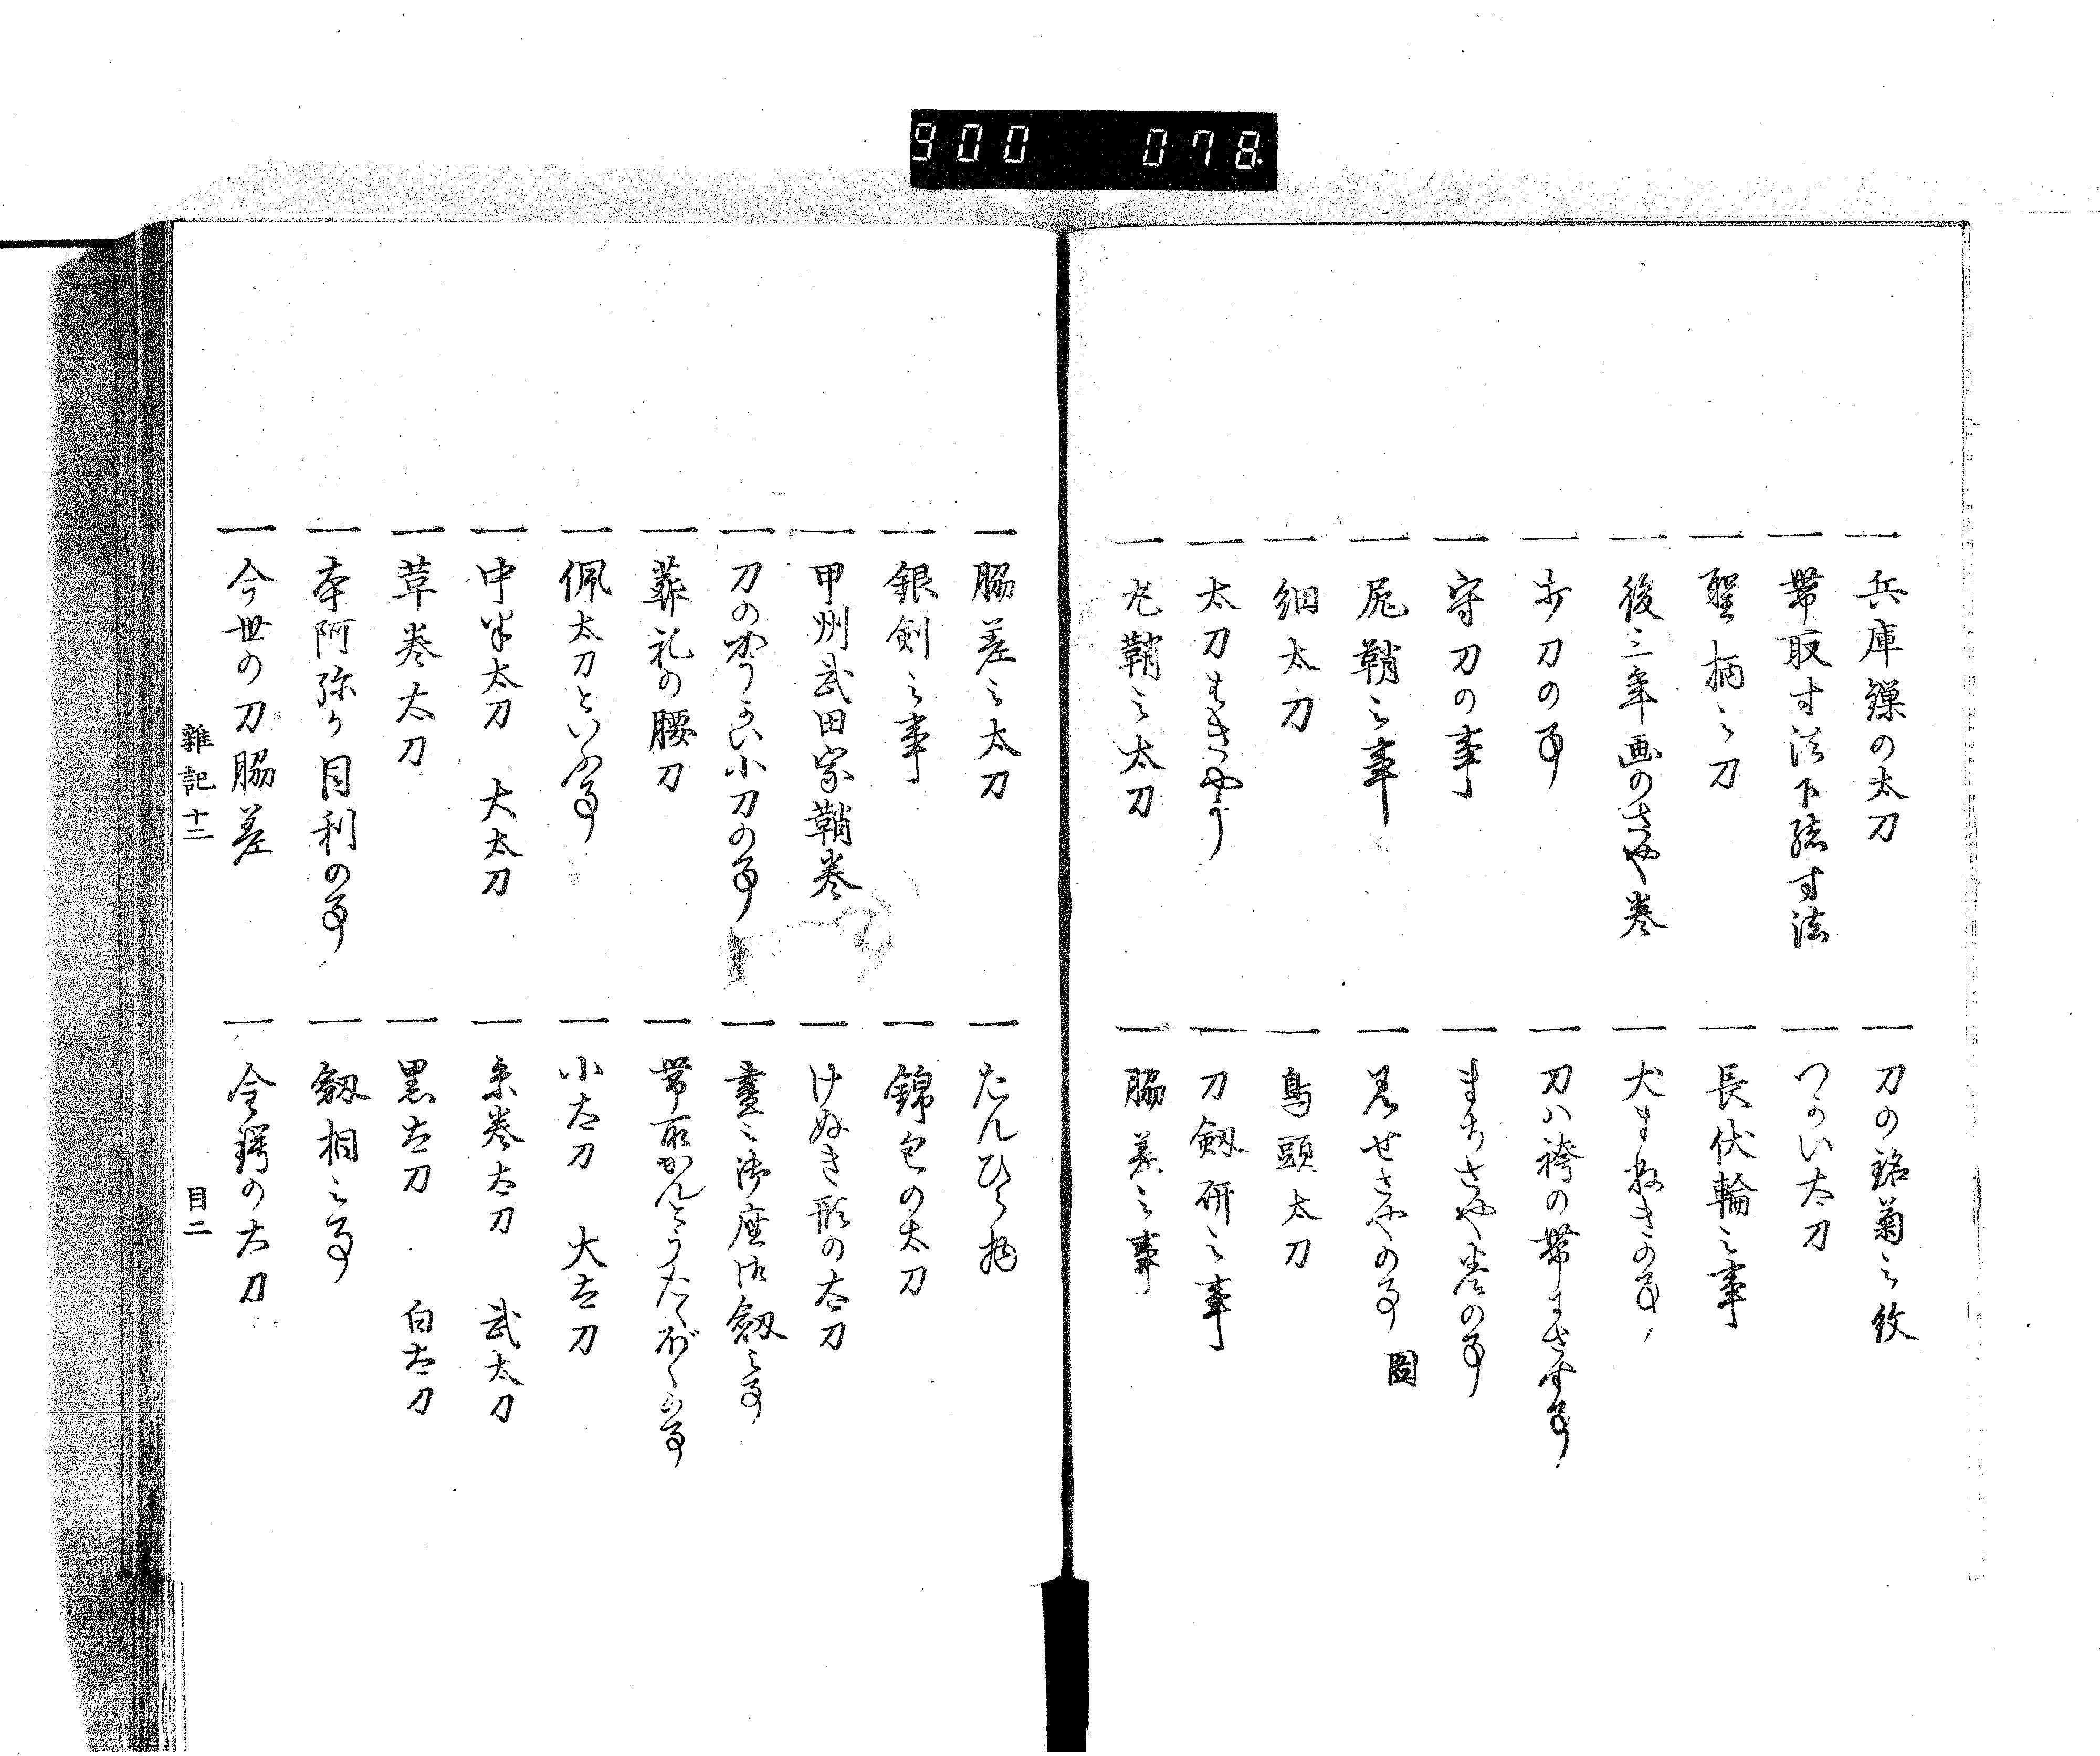 900 078.
一 兵庫鏁の太刀
一 刀の銘菊之紋
一 帯取寸法下緒寸法
一 つかい太刀
一 聖柄之刀
一 長伏輪之事
一 後三年画のさや巻
一 犬まねきの事
一 歩刀の事
一 刀ハ袴の帯にさす事
一 守刀の事
一 まちさや巻の事
一 尻鞘之事
一 見せさやの事 図
一 細太刀
一 鳥頭太刀
一 太刀はきやう
一 刀劔研之事
一 丸鞘之太刀
一 脇差之事
一 脇差之太刀
一 たんひら物
一 銀剣之事
一 錦包の太刀
一 甲州武田家鞘巻
一 けぬき形の太刀
一 刀のかうかい小刀の事
一 昼之御座御劔之事
一 葬礼の腰刀
一 帯取
一 佩太刀といふ事
一 小太刀 大太刀
一 中半太刀 大太刀
一 糸巻太刀 武太刀
一 革巻太刀
一 黒太刀 白太刀
一 本阿弥か目利の事
一 劔相之事
一 今世の刀脇差
一 今鍔の太刀
雑記十二 目二